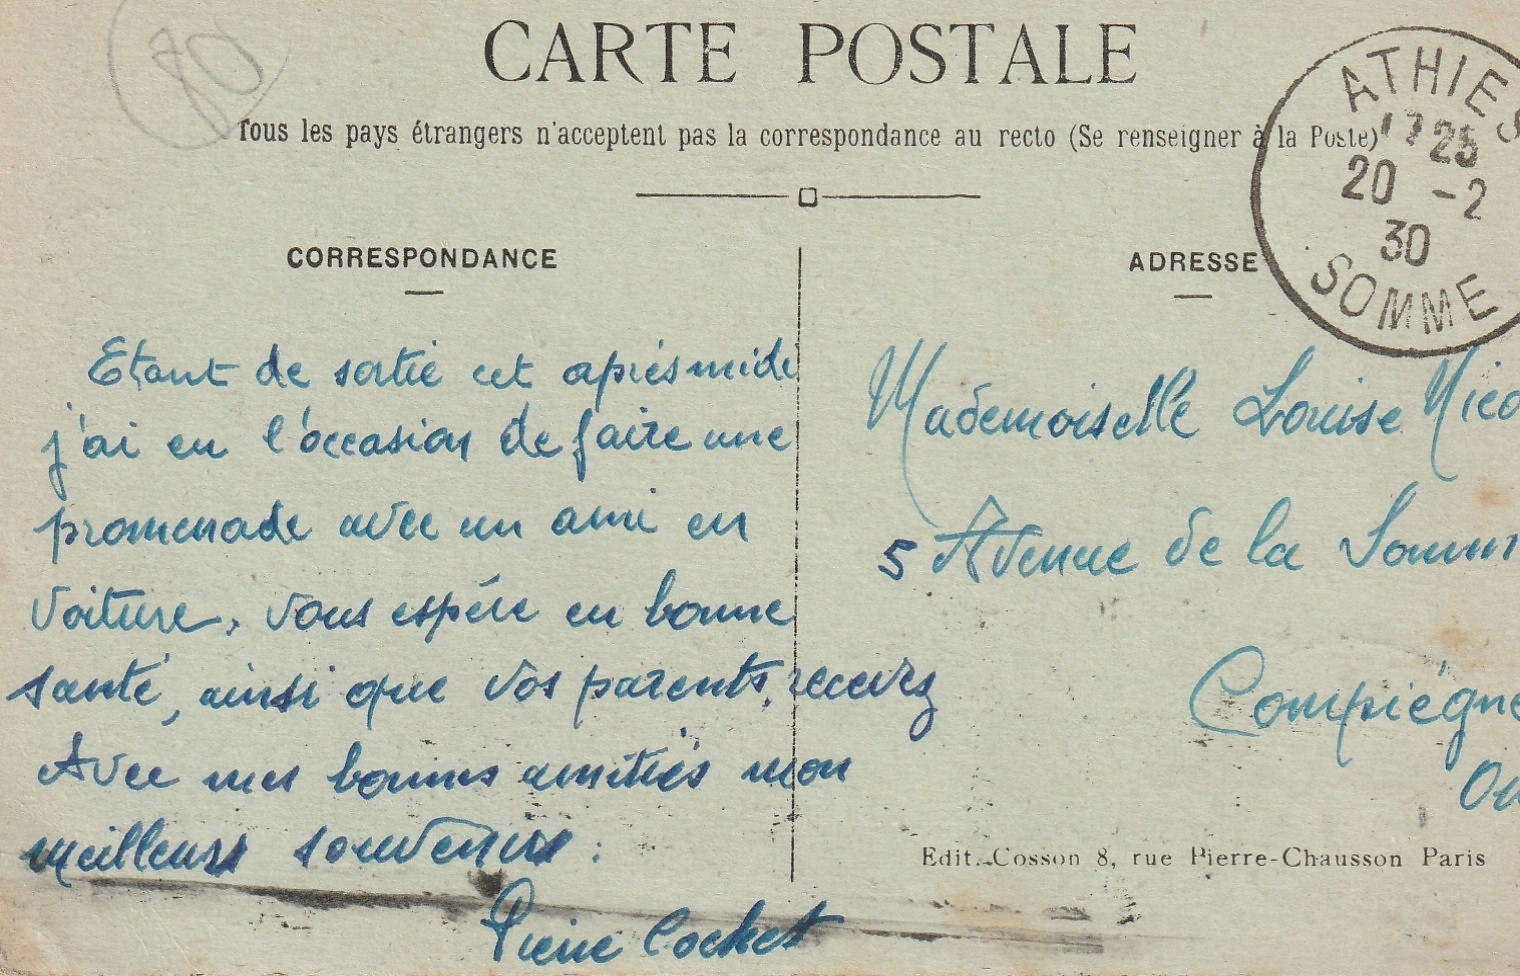 80
CARTE POSTALE
Tous les pays étrangers n'acceptent pas la correspondance au recto (Se renseigner à la Poste)
ATHIES
17 25
20 -2
30
SOMME
CORRESPONDANCE
Etant de sortie cet après midi
j'ai eu l'occasion de faire une
promenade avec un ami en
voiture, vous espére en bonne
santé, ainsi que vos parents, recevez
Avec mes bonnes amitiés mon
meilleurs souvenirs :
Pierre Cochet
ADRESSE
Mademoiselle Louise Nico
5 Avenue de la Somm
Compiégne
Oi
Edit. Cosson 8, rue Pierre-Chausson Paris